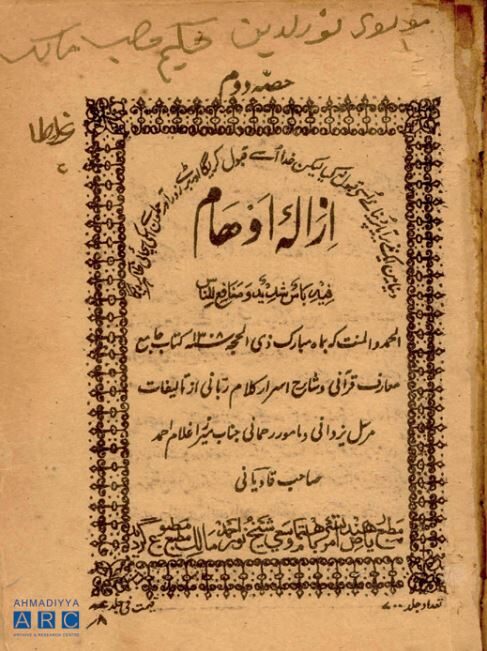 مولوی نورلدین حکیم صاحب مالک
حصہ دوم
دنیا میں ایک نذیر آیا پر دنیا نے اسے قبول نہ کیا لیکن خدا اُسے قبول کریگا اور بڑے زور آور حملوں سے اسکی سچائی ظاہر کر دیگا
ازالۂ اوہام
فیہ باس شدید و منافع للناس
الحمد والمنت کہ بماہ مبارک ذی الحجہ ۱۳۰۸ھ کتاب جامع
معارف قرآنی و شارح اسرار کلام ربانی از تالیفات
مرسل یزدانی و مامور رحمانی جناب میرزا غلام احمد
صاحب قادیانی
مطبع ریاض ہند امرتسر باہتمام شیخ نور احمد مالک مطبع مطبوع گردید
تعداد جلد ۷۰۰
قیمت فی جلد
AHMADIYYA
ARC
ARCHIVE & RESEARCH CENTRE